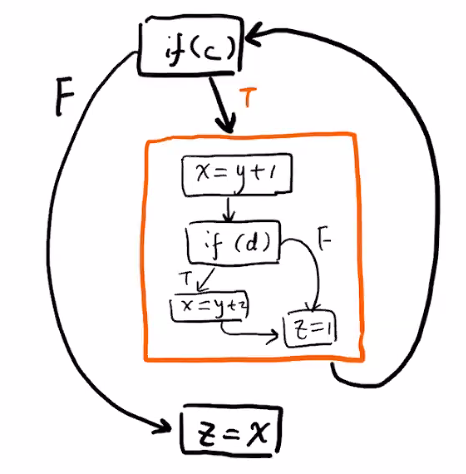 if(c)
F
T
x = y+1
if (d)
F
T
x = y+2
z=1
z = x